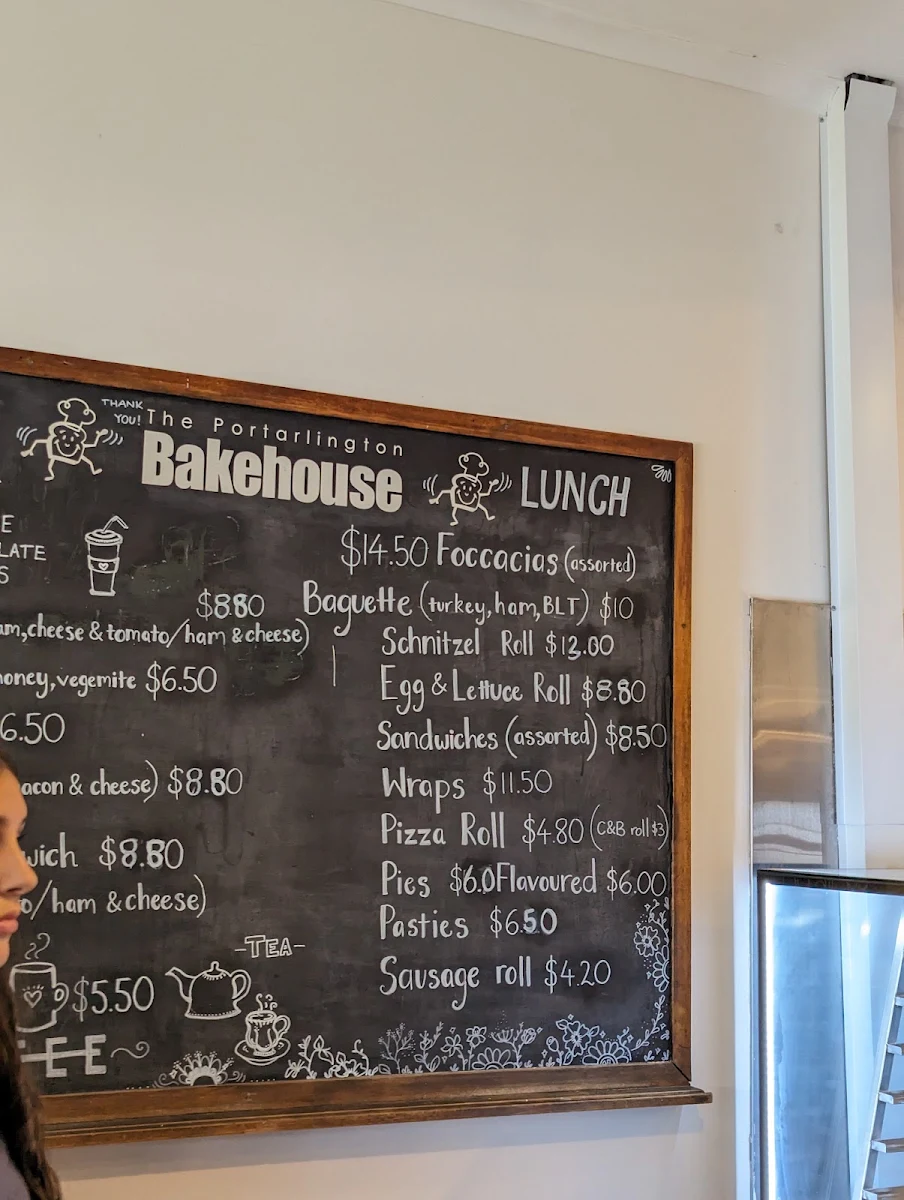 THANK
YOU!
The Portarlington
Bakehouse
LUNCH
E
LATE
S
$14.50 Foccacias (assorted)
$8.80
Baguette (turkey, ham, BLT) $10
am, cheese & tomato/ham & cheese)
Schnitzel Roll $13.00
oney, vegemite $6.50
Egg & Lettuce Roll $8.80
6.50
Sandwiches (assorted) $8.50
acon & cheese) $8.80
Wraps $11.50
Pizza Roll $4.80 (C&B roll $3)
wich $8.80
Pies $6.0 Flavoured $6.00
o/ham & cheese)
Pasties $6.50
-TEA-
$5.50
Sausage roll $4.20
EE